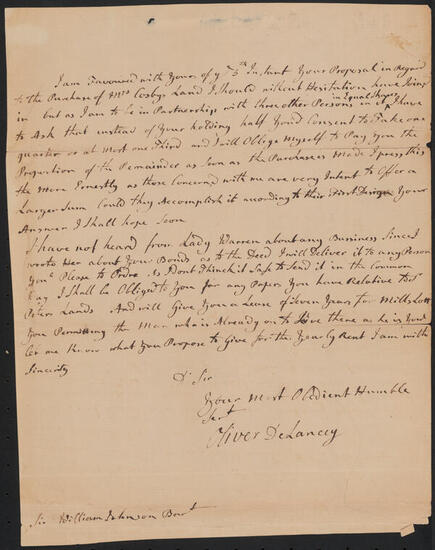 I am Favoured with Your of ye 5th Instant Your Proposal in Regard
to the Purchase of Mrs Cosbys Land I should without Hesitation have Joind
in Equal Shares
in but as I am to be in Partnership with three other Persons in it I have
to Ask that instead of Your holding half You'd Consent to Take one
quarter or at most one Third and I will Oblige myself to Pay you the
Proportion of the Remainder as Soon as the Purchase is Made I press this
the More Ernestly as those Concernd with me are very Intent to Offer a
Larger Sum Could they Accomplish it according to their First Design Your
Answer I Shall hope Soon
I have not heard from Lady Warren about any Business Since I
wrote Her about You Bonds as to the Deed I will Deliver it to any Person
You'l Please to Order As I Dont Think it Safe to Send it in the Common
Way I Shall be Obliged to You for any Paper You have Relative to St
Peters Lands And will Give You a Lease of Seven Years for Mills Lott
You Permitting the Man who is Already on to Live there as he is Good
let me Know what You Propose to Give for the Yearly Rent I am with
Sincerity
Dr Sir
Your Most Obedient Humble
Sert
Oliver DeLancey
Sir William Johnson Bart